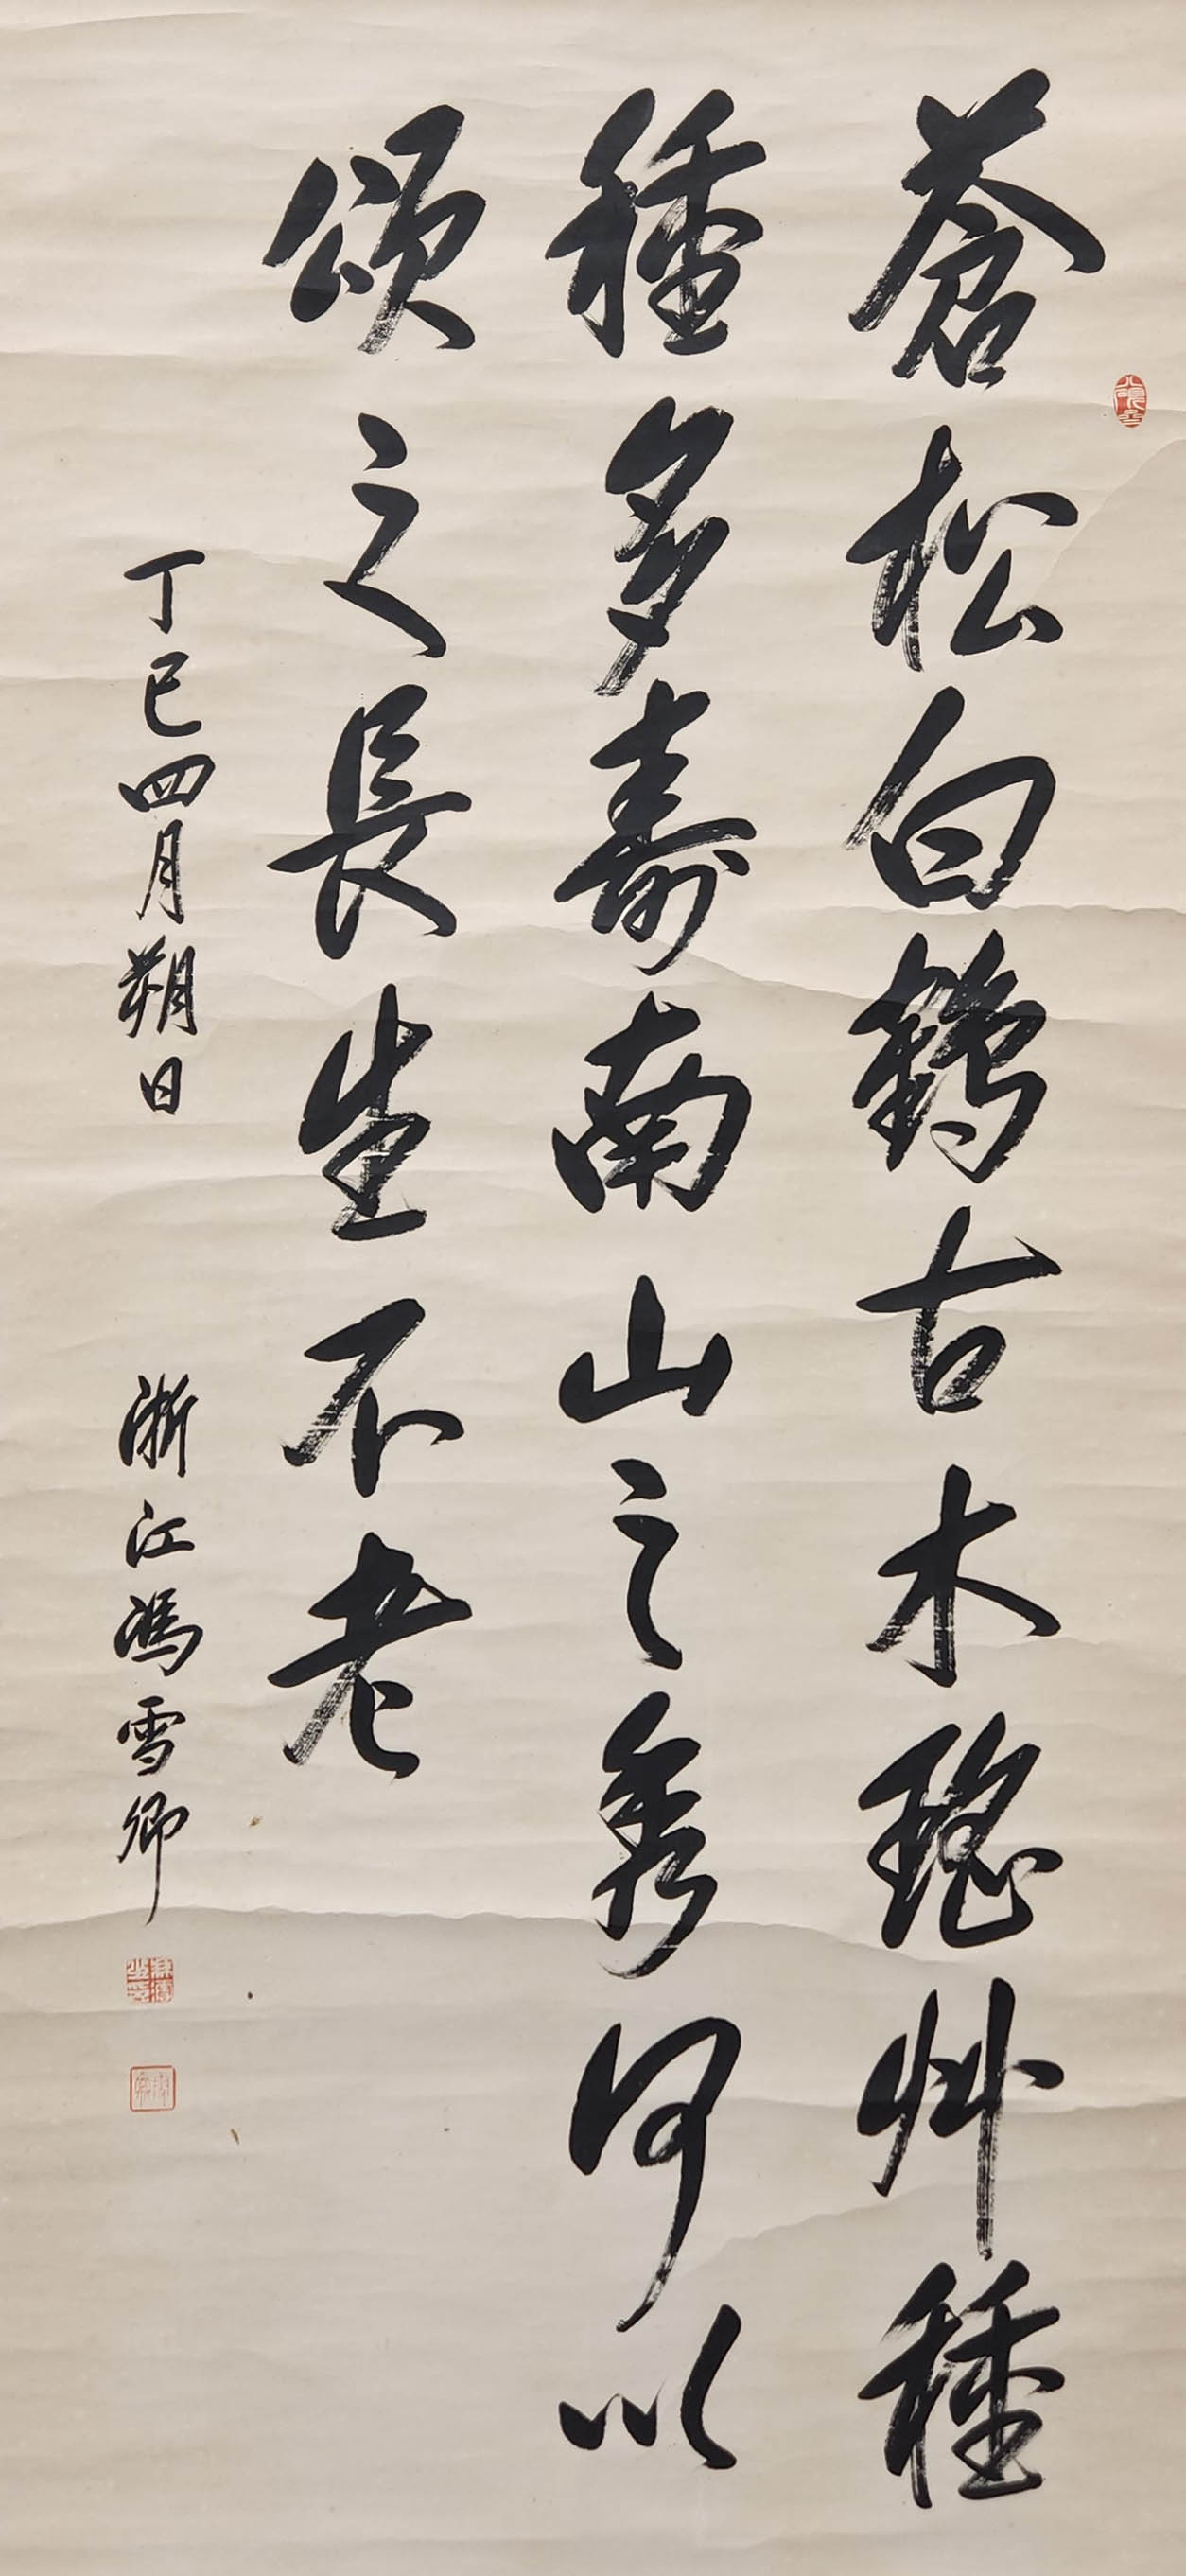 蒼松白鶴古木瑤艸種
種多壽南山之秀何以
頌之長生不老
丁巳四月朔日
浙江馮雪卿